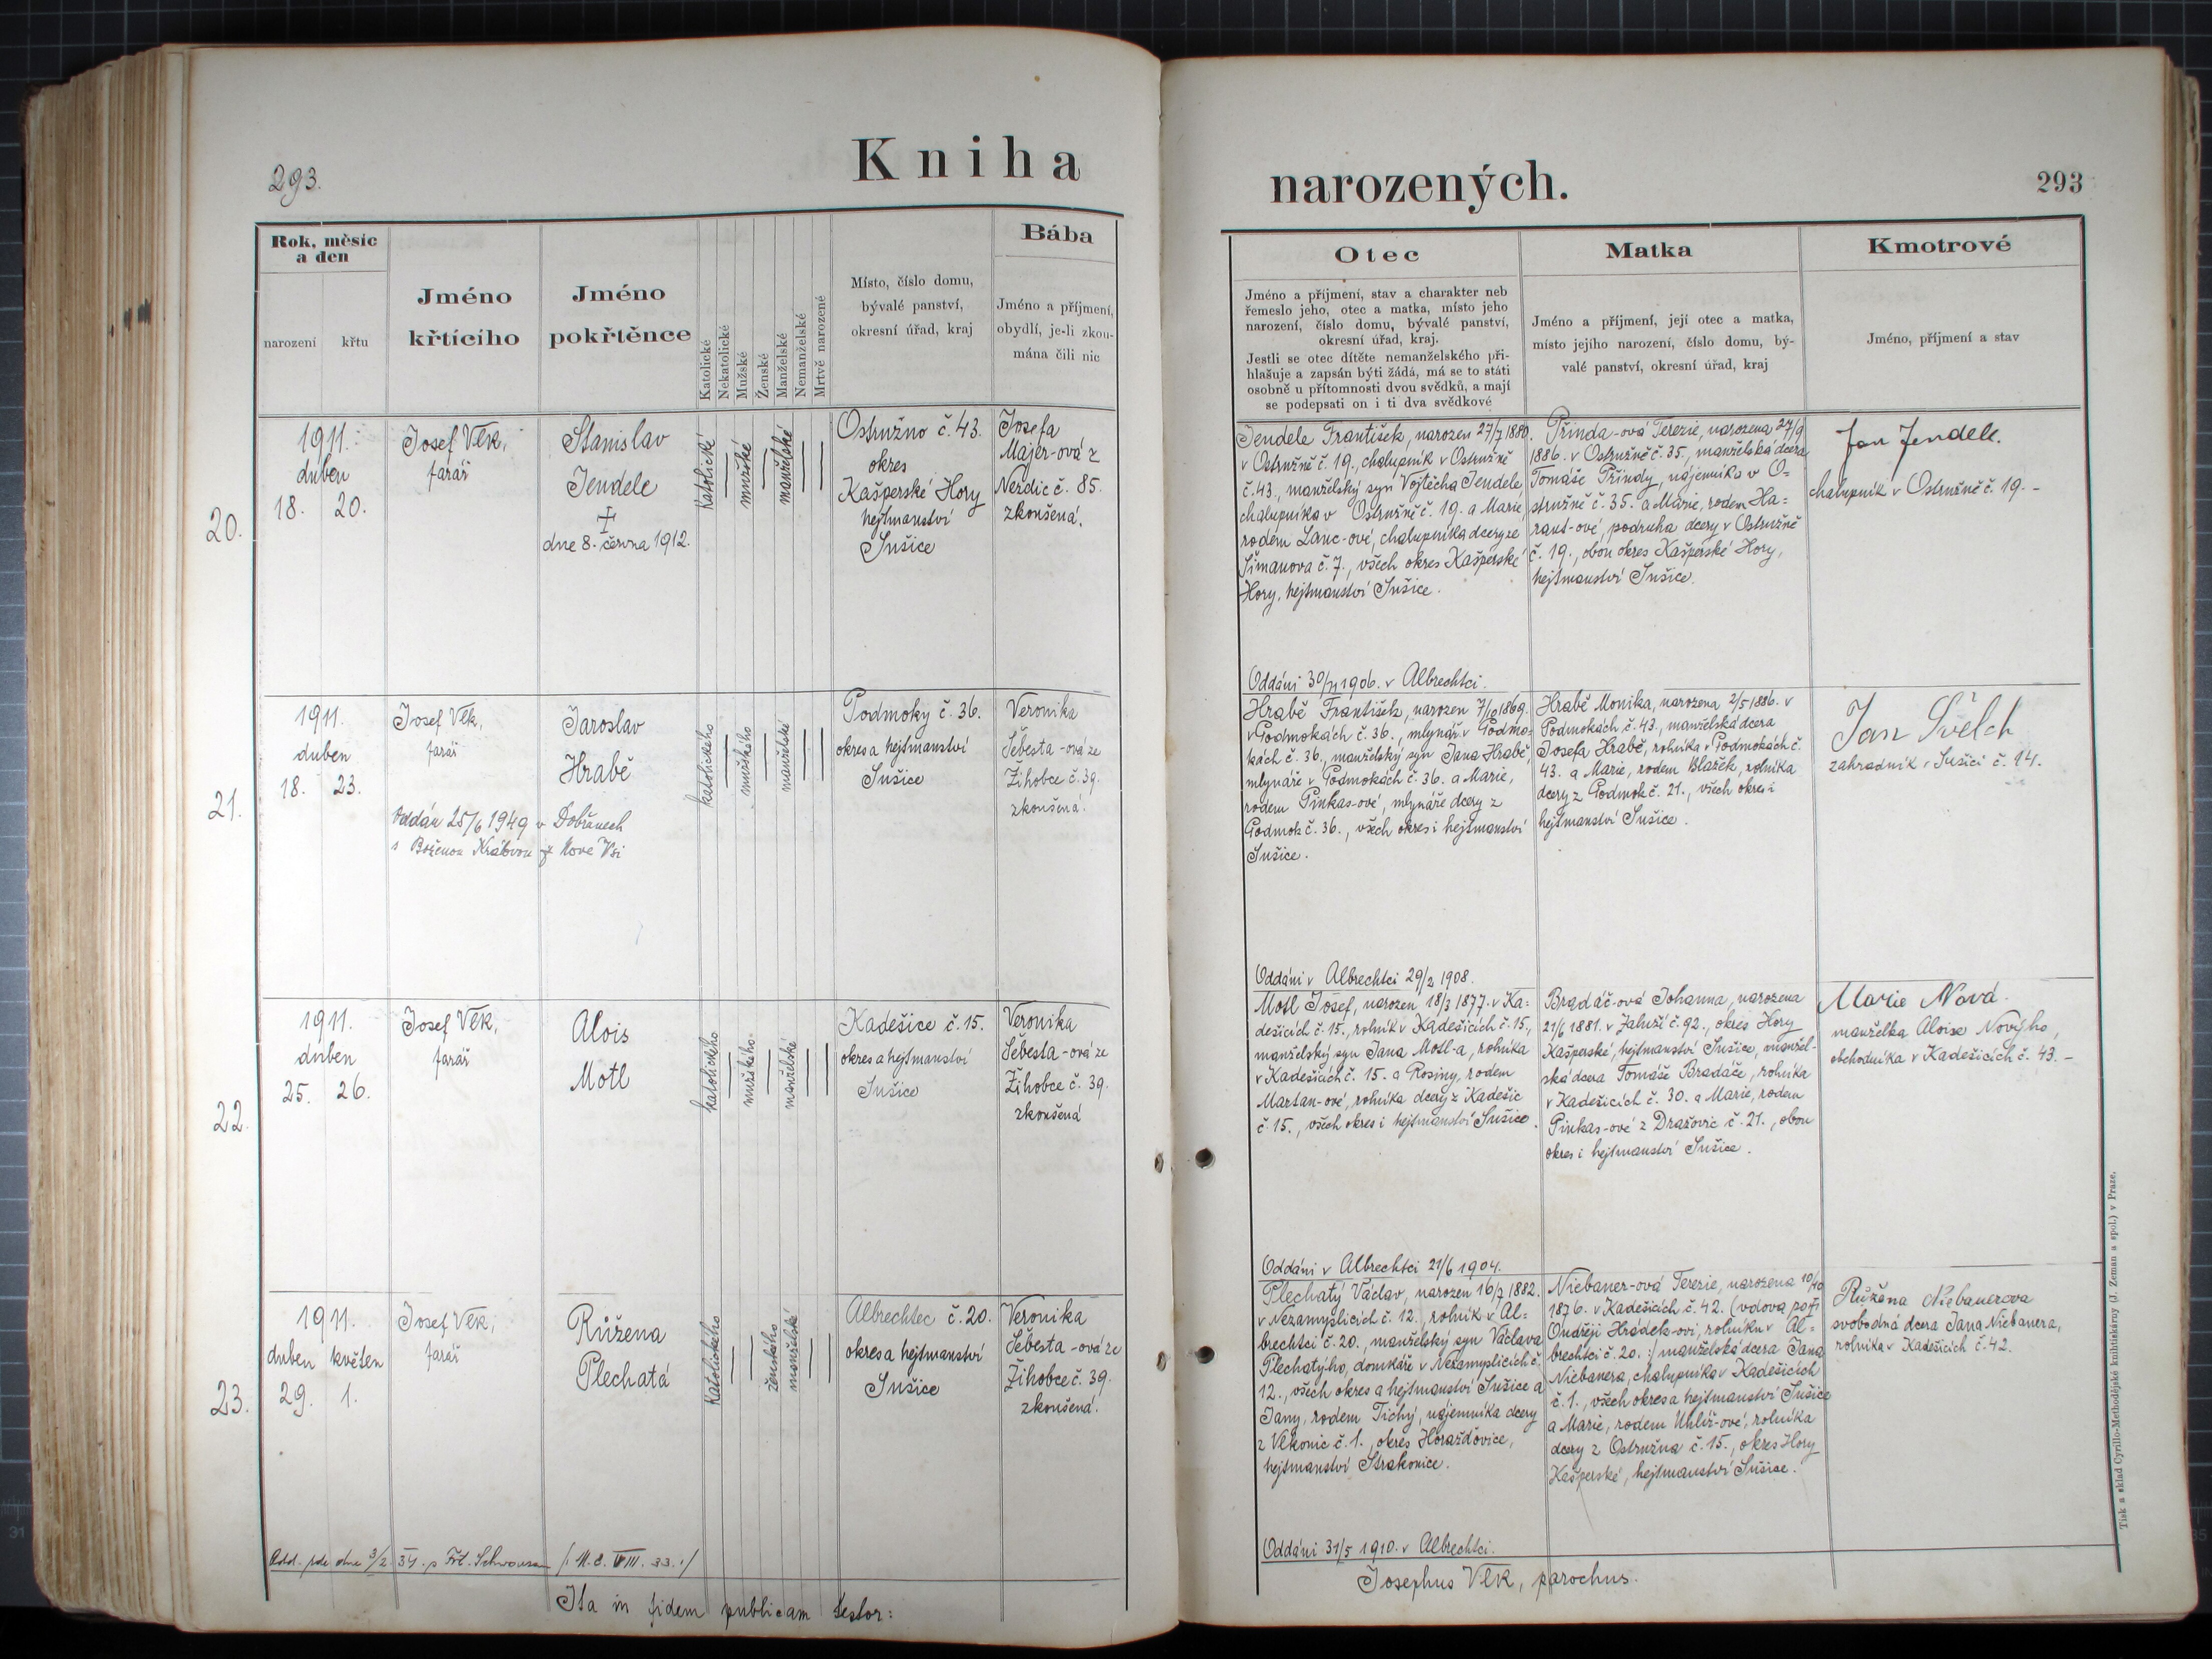 293.
Kniha
Rok, měsíc
a den
narození
křtu
Jméno
křtícího
Jméno
pokřtěnce
Katolické
Nekatolické
Mužské
Ženské
Manželské
Nemanželské
Mrtvě narozené
Místo, číslo domu,
bývalé panství,
okresní úřad, kraj
Bába
Jméno a příjmení,
obydlí, je-li zkou-
mána čili nic
20.
1911.
duben
18. 20.
Josef Vlk,
farář
Stanislav
Jendele
dne 8. června 1912.
katolické
mužské
manželské
Ostružno č. 43.
okres
Kašperské Hory
hejtmanství
Sušice
Josefa
Majer-ová z
Nezdic č. 85.
zkoušená.
21.
1911.
duben
18. 23.
Josef Vlk,
farář
Jaroslav
Hrabě
Oddán 25/6 1949 v Dobřanech
s Boženou Královou z Nové Vsi
katolického
mužského
manželské
Podmoky č. 36.
okres a hejtmanství
Sušice
Veronika
Šebesta-ová ze
Žihobce č. 39.
zkoušená.
22.
1911.
duben
25. 26.
Josef Vlk,
farář
Alois
Motl
katolického
mužského
manželské
Kadešice č. 15.
okres a hejtmanství
Sušice
Veronika
Šebesta-ová ze
Žihobce č. 39.
zkoušená
23.
1911.
duben květen
29. 1.
Josef Vlk,
farář
Růžena
Plechatá
katolického
ženského
manželské
Albrechtec č. 20.
okres a hejtmanství
Sušice
Veronika
Šebesta-ová ze
Žihobce č. 39.
zkoušená.
dne 3/2 34. s Frt.
Ita in fidem publicam testor:
narozených.
293
Otec
Jméno a příjmení, stav a charakter neb
řemeslo jeho, otec a matka, místo jeho
narození, číslo domu, bývalé panství,
okresní úřad, kraj.
Jestli se otec dítěte nemanželského při-
hlašuje a zapsán býti žádá, má se to státi
osobně u přítomnosti dvou svědků, a mají
se podepsati on i ti dva svědkové
Matka
Jméno a příjmení, její otec a matka,
místo jejího narození, číslo domu, bý-
valé panství, okresní úřad, kraj
Kmotrové
Jméno, příjmení a stav
Jendele František, narozen 27/7 1880.
v Ostružně č. 19., chalupník v Ostružně
č. 43., manželský syn Vojtěcha Jendele,
chalupníka v Ostružně č. 19. a Marie,
rodem Lanc-ové, chalupníka dcery ze
Šimanova č. 7., všech okres Kašperské
Hory, hejtmanství Sušice.
Oddáni 30/ 1906. v Albrechtci.
Přinda-ová Terezie, narozena 27/9
1886. v Ostružně č. 35., manželská dcera
Tomáše Přindy, nájemníka v O-
stružně č. 35. a Marie, rodem Ha-
rant-ové, podruha dcery v Ostružně
č. 19., obou okres Kašperské Hory,
hejtmanství Sušice.
Jan Jendele.
chalupník v Ostružně č. 19. -
Hrabě František, narozen 7/ 1869.
v Podmokách č. 36., mlynář v Podmo-
kách č. 36., manželský syn Jana Hrabě,
mlynáře v Podmokách č. 36. a Marie,
rodem Pinkas-ové, mlynáře dcery z
Podmok č. 36., všech okres i hejtmanství
Sušice.
Oddáni v Albrechtci 29/2 1908.
Hrabě Monika, narozena 2/5 1886. v
Podmokách č. 43., manželská dcera
Josefa Hrabě, rolníka v Podmokách č.
43. a Marie, rodem Blažek, rolníka
dcery z Podmok č. 21., všech okres i
hejtmanství Sušice.
Jan Švelch
zahradník v Sušici č. 14.
Motl Josef, narozen 18/3 1877. v Ka-
dešicích č. 15., rolník v Kadešicích č. 15.,
manželský syn Jana Motl-a, rolníka
v Kadešicích č. 15. a Rosiny, rodem
Martan-ové, rolníka dcery z Kadešic
č. 15., všech okres i hejtmanství Sušice.
Oddáni v Albrechtci 21/6 1904.
Bradáč-ová Johanna, narozena
21/6 1881. v Jaluží č. 92., okres Hory
Kašperské, hejtmanství Sušice, manžel-
ská dcera Tomáše Bradáče, rolníka
v Kadešicích č. 30. a Marie, rodem
Pinkas-ové z Dražovic č. 21., obou
okres i hejtmanství Sušice.
Marie Nová.
manželka Aloise Nového,
obchodníka v Kadešicích č. 43. -
Plechatý Václav, narozen 16/7 1882.
v Nezamyslicích č. 12., rolník v Al-
brechtci č. 20., manželský syn Václava
Plechatýho, domkáře v Nezamyslicích č.
12., všech okres a hejtmanství Sušice a
Jany, rodem Tichý, nájemníka dcery
z Vlkonic č. 1., okres Horažďovice,
hejtmanství Strakonice.
Oddáni 31/5 1910. v Albrechtci.
Niebauer-ová Terezie, narozena 10/10
1876. v Kadešicích č. 42. (vdova po †
Ondřeji Hrádek-ovi, rolníku v Al-
brechtci č. 20. :/ manželská dcera Jana
Niebauera, chalupníka v Kadešicích
č. 1., všech okres a hejtmanství Sušice
a Marie, rodem Uhlíř-ové, rolníka
dcery z Ostružna č. 15., okres Hory
Kašperské, hejtmanství Sušice.
Růžena Niebauerova
svobodná dcera Jana Niebauera,
rolníka v Kadešicích č. 42.
Josephus Vlk, parochus.
Tisk a sklad Cyrillo-Methodějské knihtiskárny (J. Zeman a spol.) v Praze.